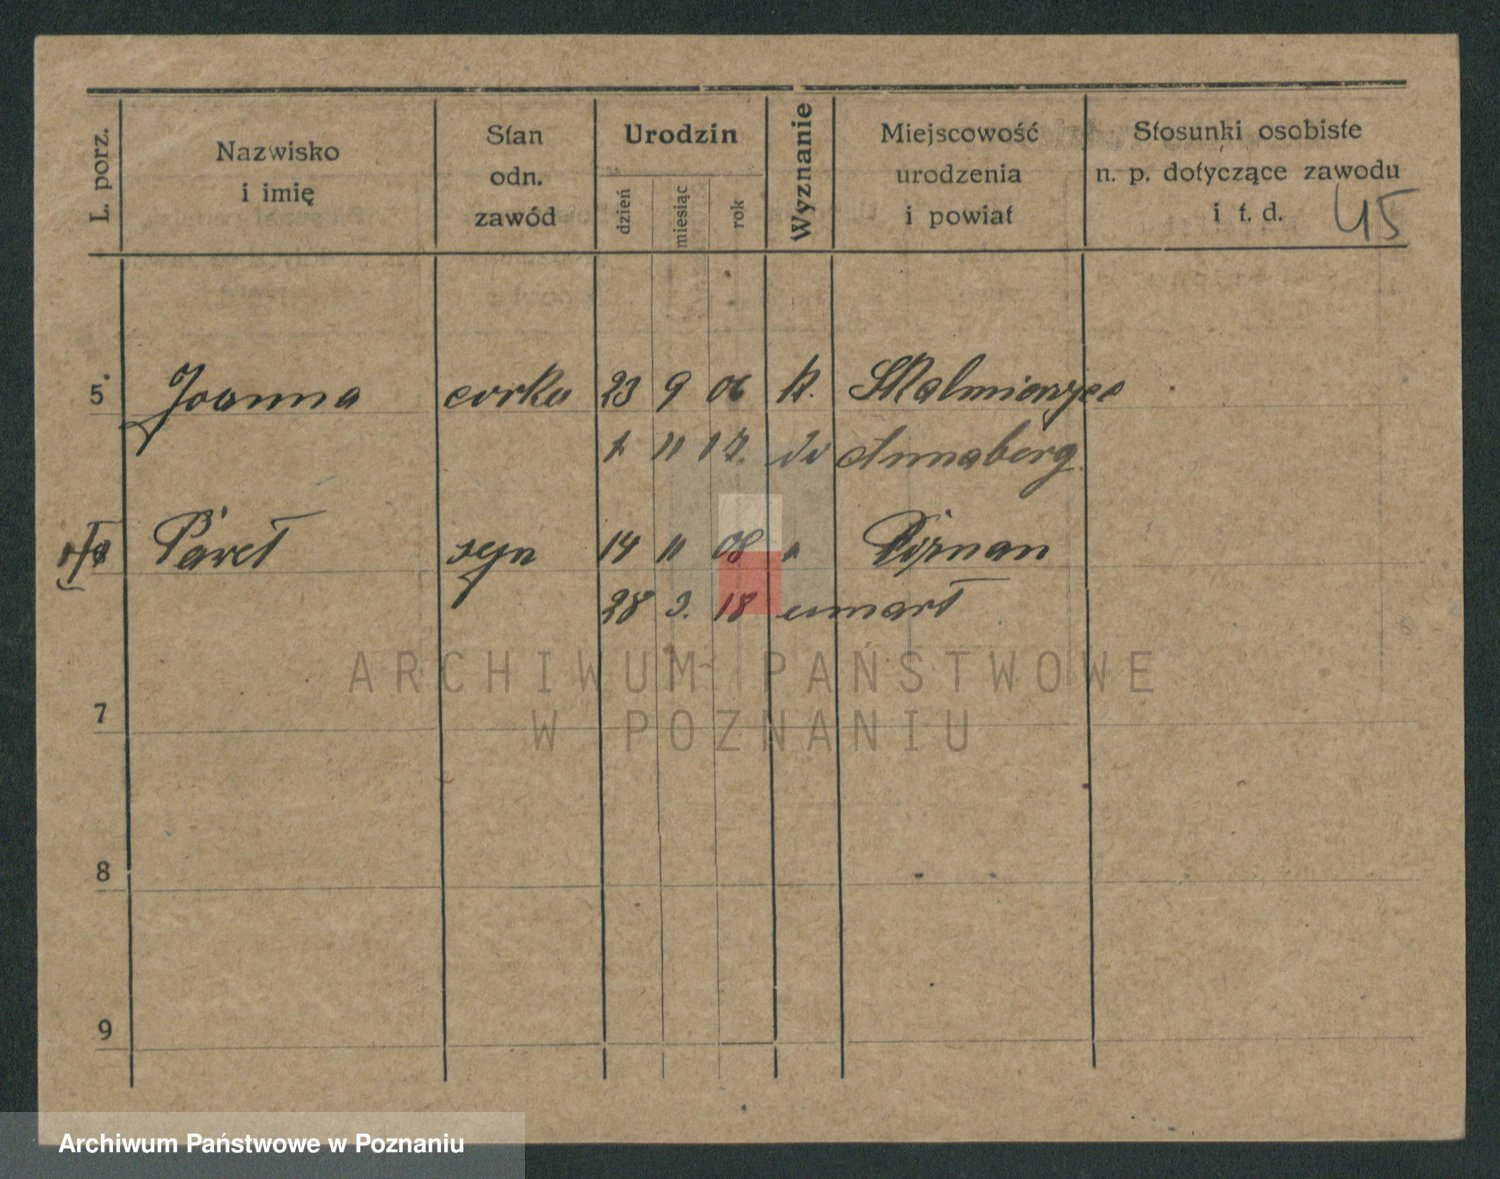 L. porz.
Nazwisko
i imię
Stan
odn.
zawód
Urodzin
dzień
miesiąc
rok
Wyznanie
Miejscowość
urodzenia
i powiat
Stosunki osobiste
n. p. dotyczące zawodu
i t. d.
45
5 Joanna corka 23 9 06 k. Skalmierzyce
1. 11 17. do Annaberg.
Paweł syn 14 11 08 " Poznan
28 3. 18 umarł
ARCHIWUM PAŃSTWOWE
W POZNANIU
7
8
9
Archiwum Państwowe w Poznaniu